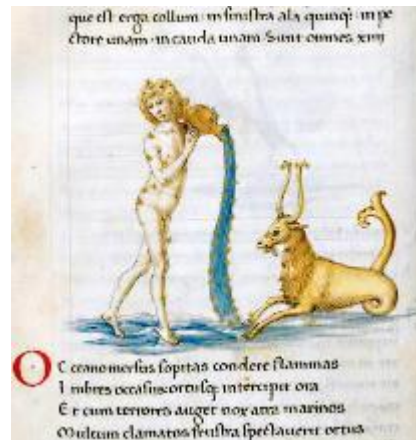 que est erga collum · in sinistra ala quinq; · in pe
ctore unam · in cauda unam · Sunt omnes xiiii
O Cceano mersus sopitas condere flammas
Imbres occasus ortusq; intercipit ora
Et cum terrores auget nox atra marinos
Multum clamatos frustra spectaverit ortus